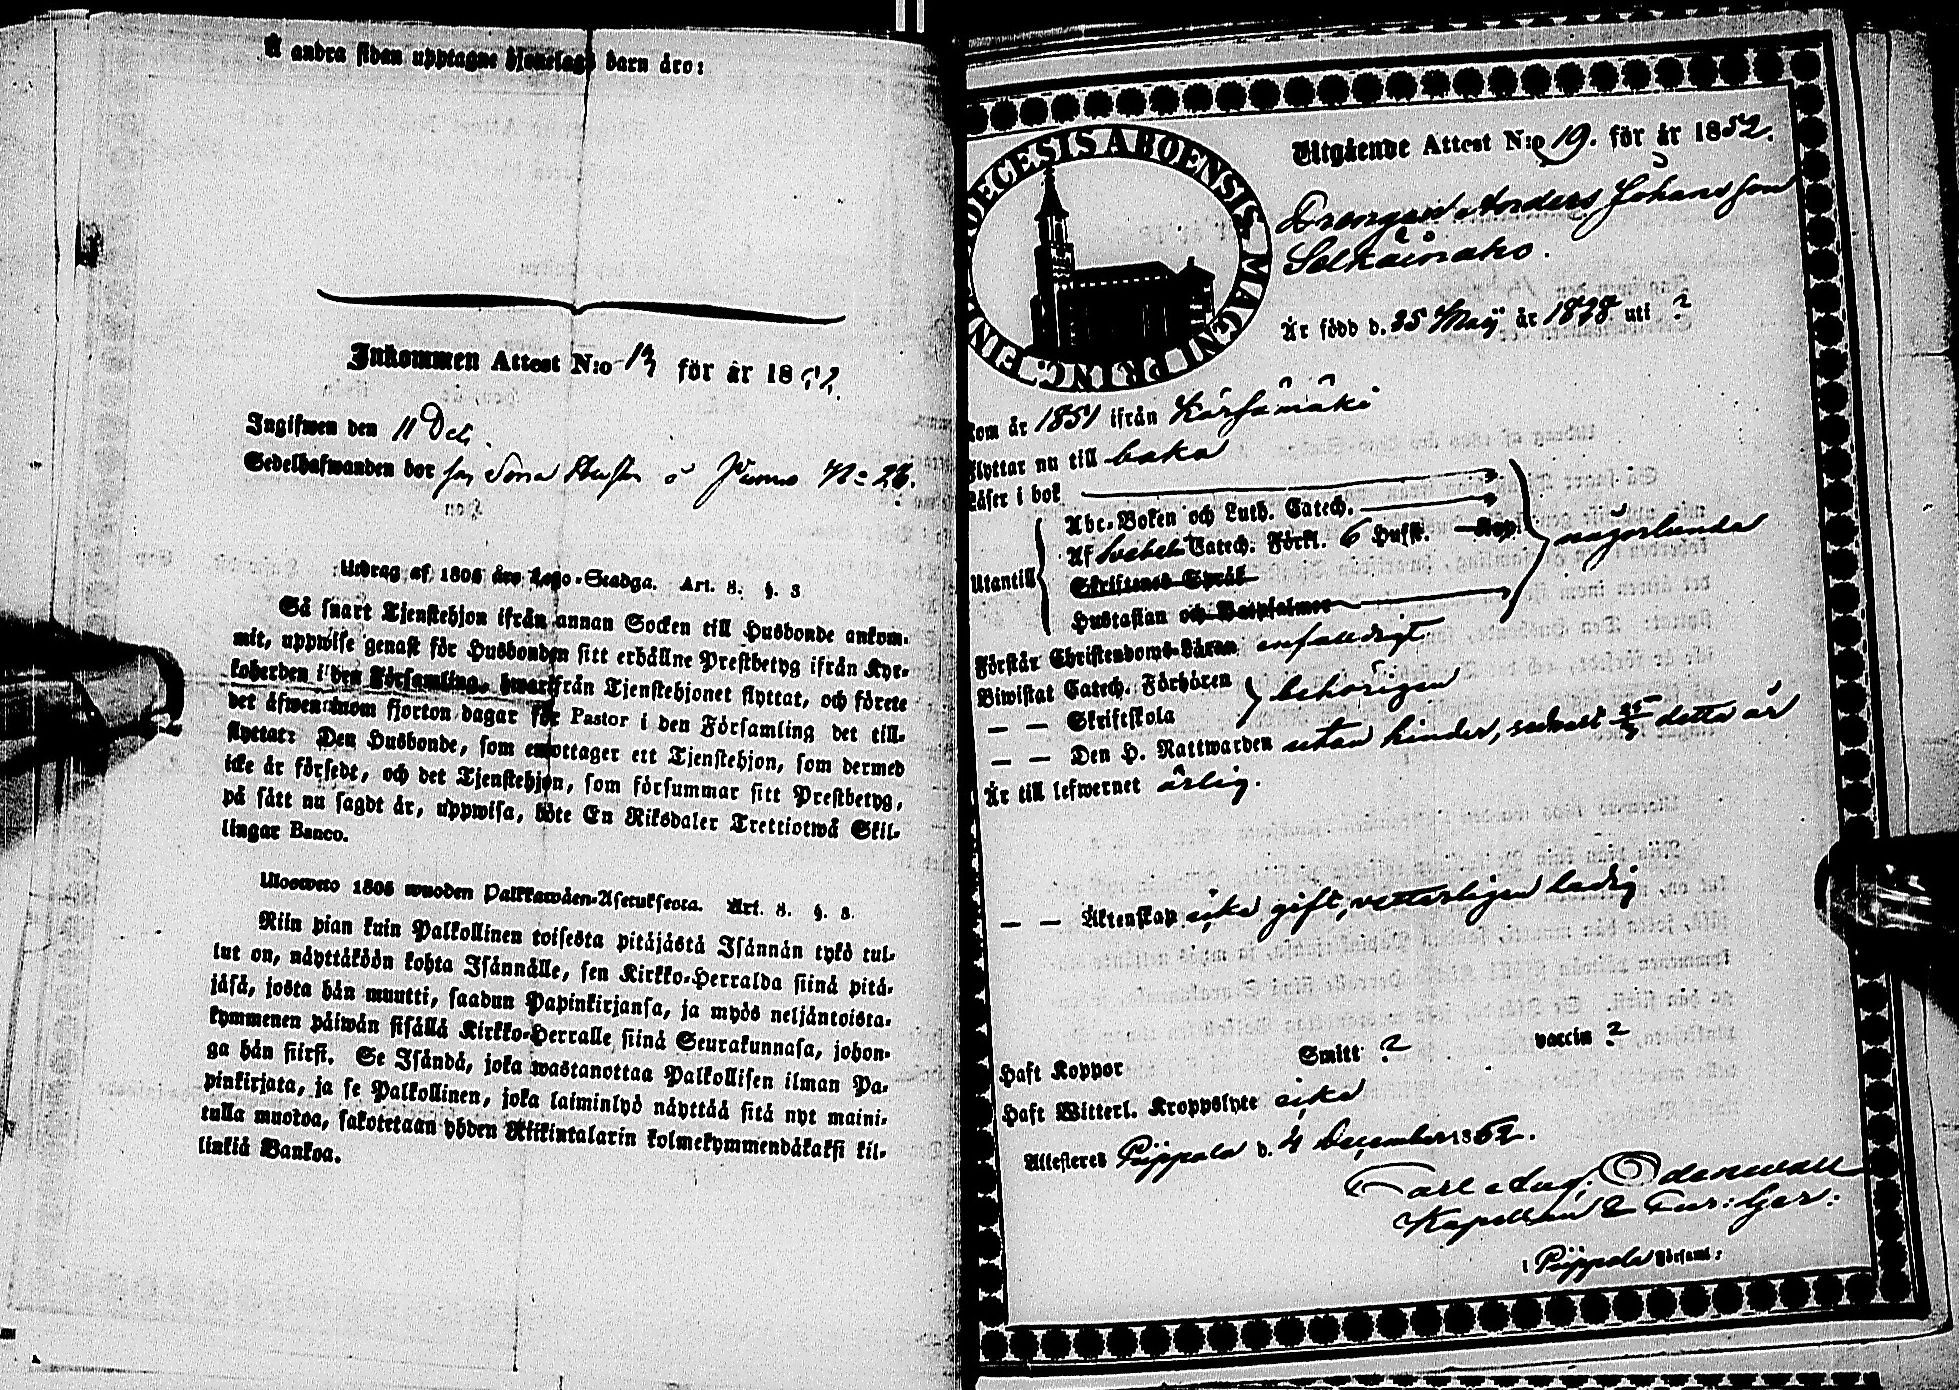 Å andra sidan upptagne Hjonelags barn äro:
Inkommen Attest N:o 13 för år 1852.
Ingifwen den 11 Dec.
Sedelhafwanden bor N:o 26.
Utdrag af 1805 års Lego-Stadga. Art. 8. §. 8
Så snart Tjenstehjon ifrån annan Socken till Husbonde ankom-
mit, uppwise genast för Husbonden sitt erhållne Prestbetyg ifrån Kyr-
koherden i den Församling, hwarifrån Tjenstehjonet flyttat, och förete
det äfwen inom fjorton dagar för Pastor i den Församling det till-
flyttat: Den Husbonde, som emottager ett Tjenstehjon, som dermed
icke är försedt, och det Tjenstehjon, som försummar sitt Prestbetyg,
på sätt nu sagdt är, uppwisa, böte En Riksdaler Trettiotwå Skil-
lingar Banco.
Uloswето 1805 wuoden Palkkawäen-Asetuksesta. Art. 8. §. 8.
Niin pian kuin Palkollinen toisesta pitäjästä Isännän tykö tul-
lut on, näyttäköön kohta Isännälle, sen Kirkko-Herralda siinä pitä-
jäsä, josta hän muutti, saadun Papinkirjansa, ja myös neljäntoista-
kymmenen päiwän sisällä Kirkko-Herralle siinä Seurakunnasa, johon-
ga hän siirsi. Se Isändä, joka wastanottaa Palkollisen ilman Pa-
pinkirjata, ja se Palkollinen, joka laiminlyö näyttää sitä nyt maini-
tulla muotoa, sakotetaan yhden Riikintalarin kolmekymmendäkaksi kil-
linkiä Bankoa.
DIOECESIS ABOENSIS MAGNI PRINC. FINL.
Utgående Attest N:o 19. för år 1852.
Drengen Anders Johansson
Selkäinaho.
Är född d. 25 Maij år 1828 uti ?
Kom år 1851 ifrån Kärsämäki
Flyttar nu till baka
Läser i bok
Abc-Boken och Luth. Catech.
Utantill Af Svebeli Catech. Förkl. 6 Hufst. Kap. någorlunda
Skriftenes Språk
Hustaflan och Botpsalmer
Förstår Christendoms-Läran enfaldigt
Biwistat Catech. Förhören behörigen
— — Skriftskola
— — Den H. Nattwarden utan hinder, senast 25/7 detta år
Är till lefwernet ärlig.
— — Äktenskap icke gift, vetterligen ledig
Haft Koppor Smitt ? vaccin ?
Haft Witterl. Kroppslyte icke
Attesteres Piippola d. 4 December 1852.
Carl Aug. Odenwall
Kapellan & Cur: Ger:
i Piippola Församl: